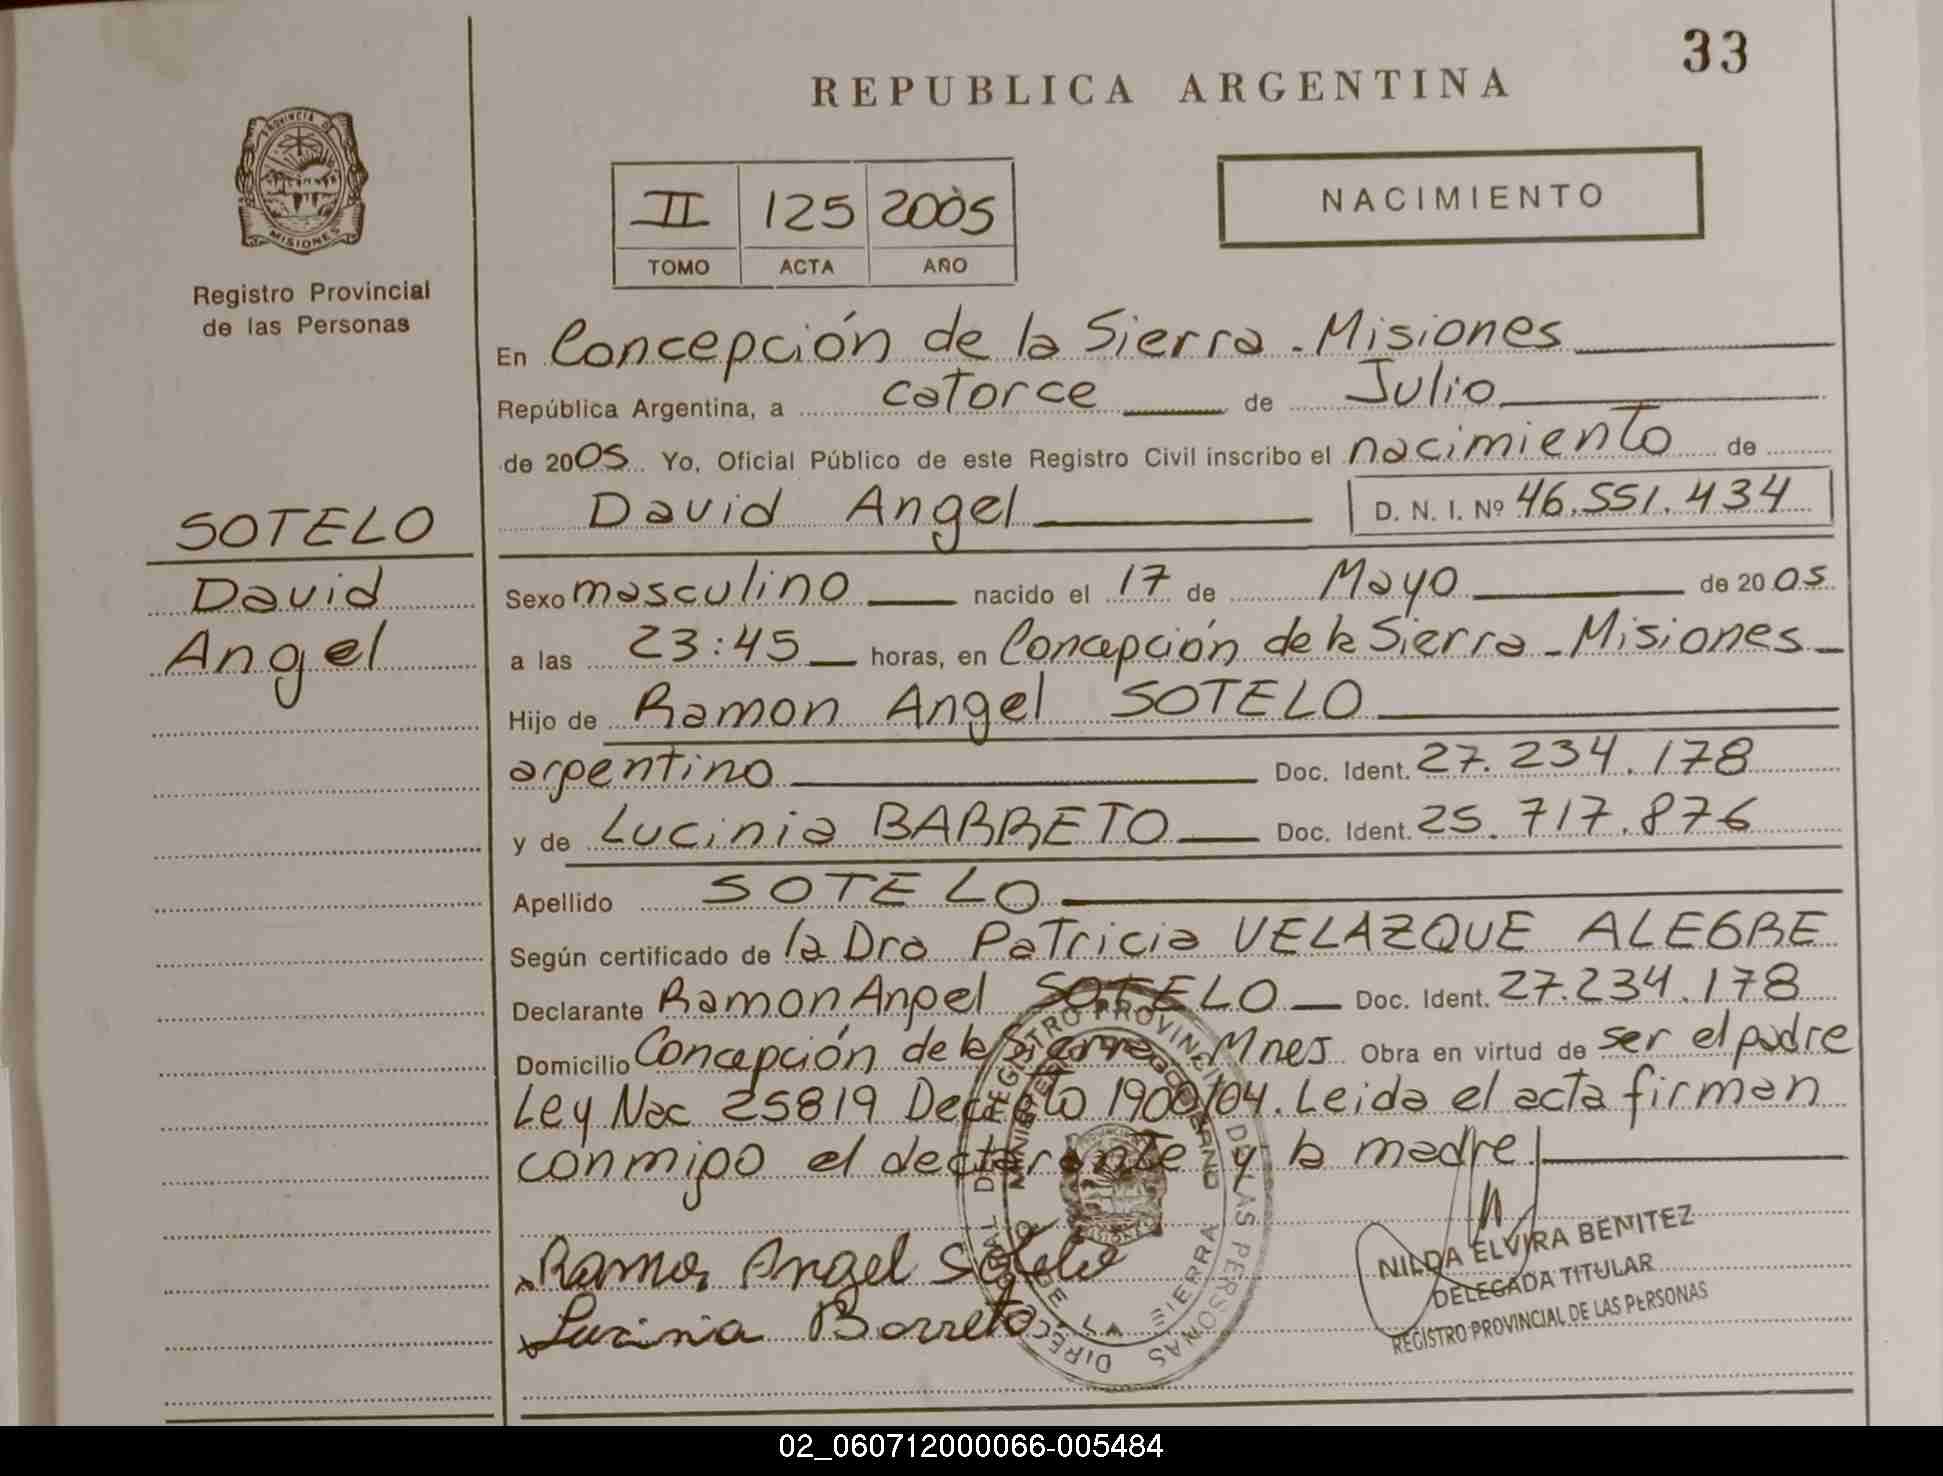 33
REPUBLICA ARGENTINA
PROVINCIA DE
MISIONES
Registro Provincial
de las Personas
II 125 2005
TOMO ACTA AÑO
NACIMIENTO
En Concepción de la Sierra - Misiones
República Argentina, a catorce de Julio
de 2005 Yo, Oficial Público de este Registro Civil inscribo el nacimiento de
David Angel D. N. I. Nº 46.551.434
SOTELO
David
Angel
Sexo masculino nacido el 17 de Mayo de 2005
a las 23:45 horas, en Concepción de la Sierra - Misiones
Hijo de Ramon Angel SOTELO
argentino Doc. Ident. 27.234.178
y de Lucinia BARRETO Doc. Ident. 25.717.876
Apellido SOTELO
Según certificado de la Dra Patricia VELAZQUE ALEGRE
Declarante Ramon Angel SOTELO Doc. Ident. 27.234.178
Domicilio Concepción de la Sierra Mnes Obra en virtud de ser el padre
Ley Nac 25819 Decreto 1900/04. Leida el acta firman
conmigo el declarante y la madre
Ramon Angel Sotelo
Lucinia Barreto
NILDA ELVIRA BENITEZ
DELEGADA TITULAR
REGISTRO PROVINCIAL DE LAS PERSONAS
02_060712000066-005484